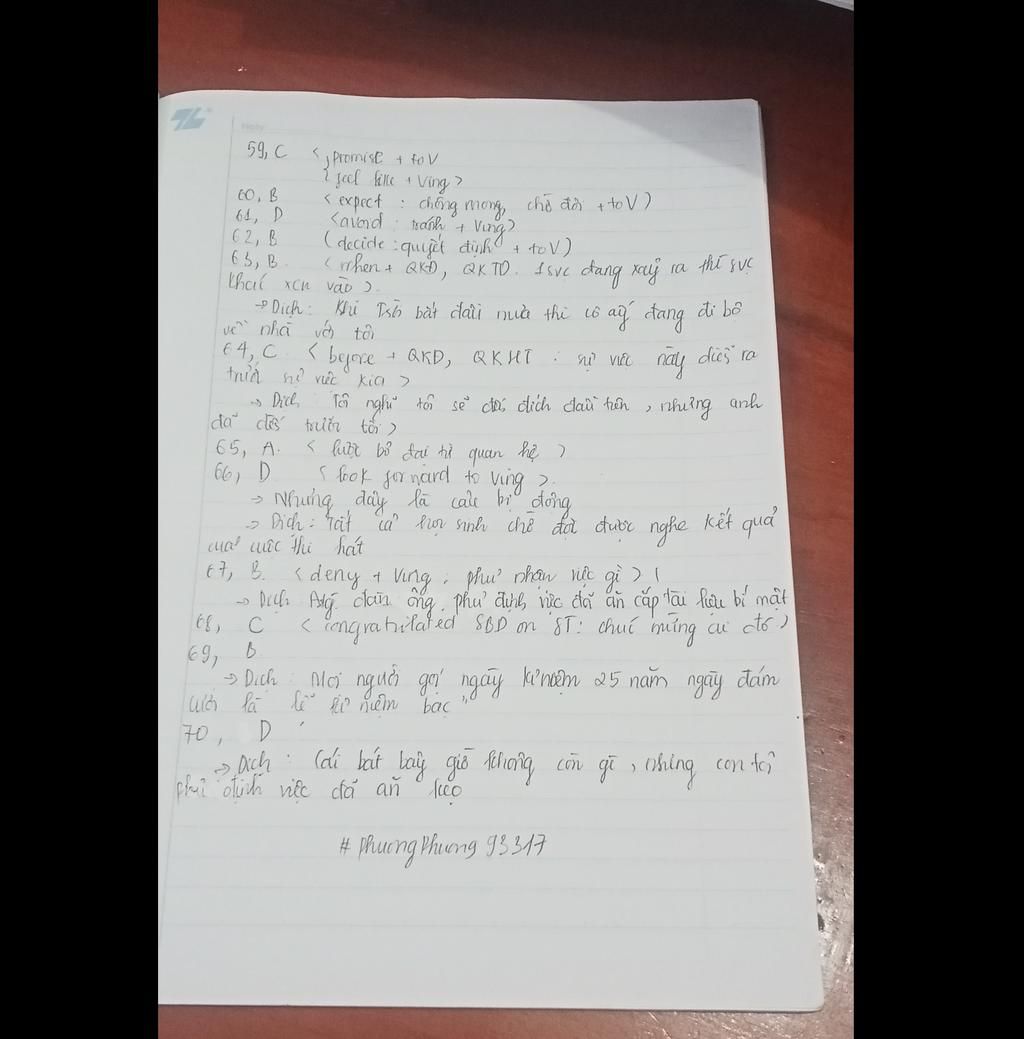 59, C < promise + to V
feel like + Ving >
60, B < expect : chông mong, chờ đời + to V )
61, D < avoid : tránh + Ving >
62, B ( decide : quyết định + to V )
63, B. < when + QKD, QKTD. 1 svc đang xảy ra thì svc
khác xen vào ).
→ Dịch : Khi Tsb bắt đầu mưa thì cô ấy đang đi bộ
về nhà với tôi
64, C < before + QKD, QKHT : sự việc này diễn ra
trước sự việc kia >
→ Dịch Tôi nghĩ tôi sẽ đến đích đầu tiên, nhưng anh
đã đến trước tôi >
65, A. < lược bỏ đại từ quan hệ >
66, D < look forward to Ving >.
→ Nhưng đây là câu bị động
→ Dịch : Tất cả học sinh chờ đợi được nghe kết quả
cuộc thi hát
67, B. < deny + Ving : phủ nhận việc gì > (
→ Dịch đàn ông phủ định việc đã ăn cắp tài liệu bí mật
68, C < congratulated SBD on ST : chúc mừng cái )
69, B
→ Dịch : Mọi người gọi ngày kỉ niệm 25 năm ngày đám
cưới là lễ kỉ niệm bạc "
70, D
→ Dịch : Cái bát bây giờ không còn gì, nhưng con tôi
phủ định việc đã ăn kẹo
# PhuongPhuong 93317